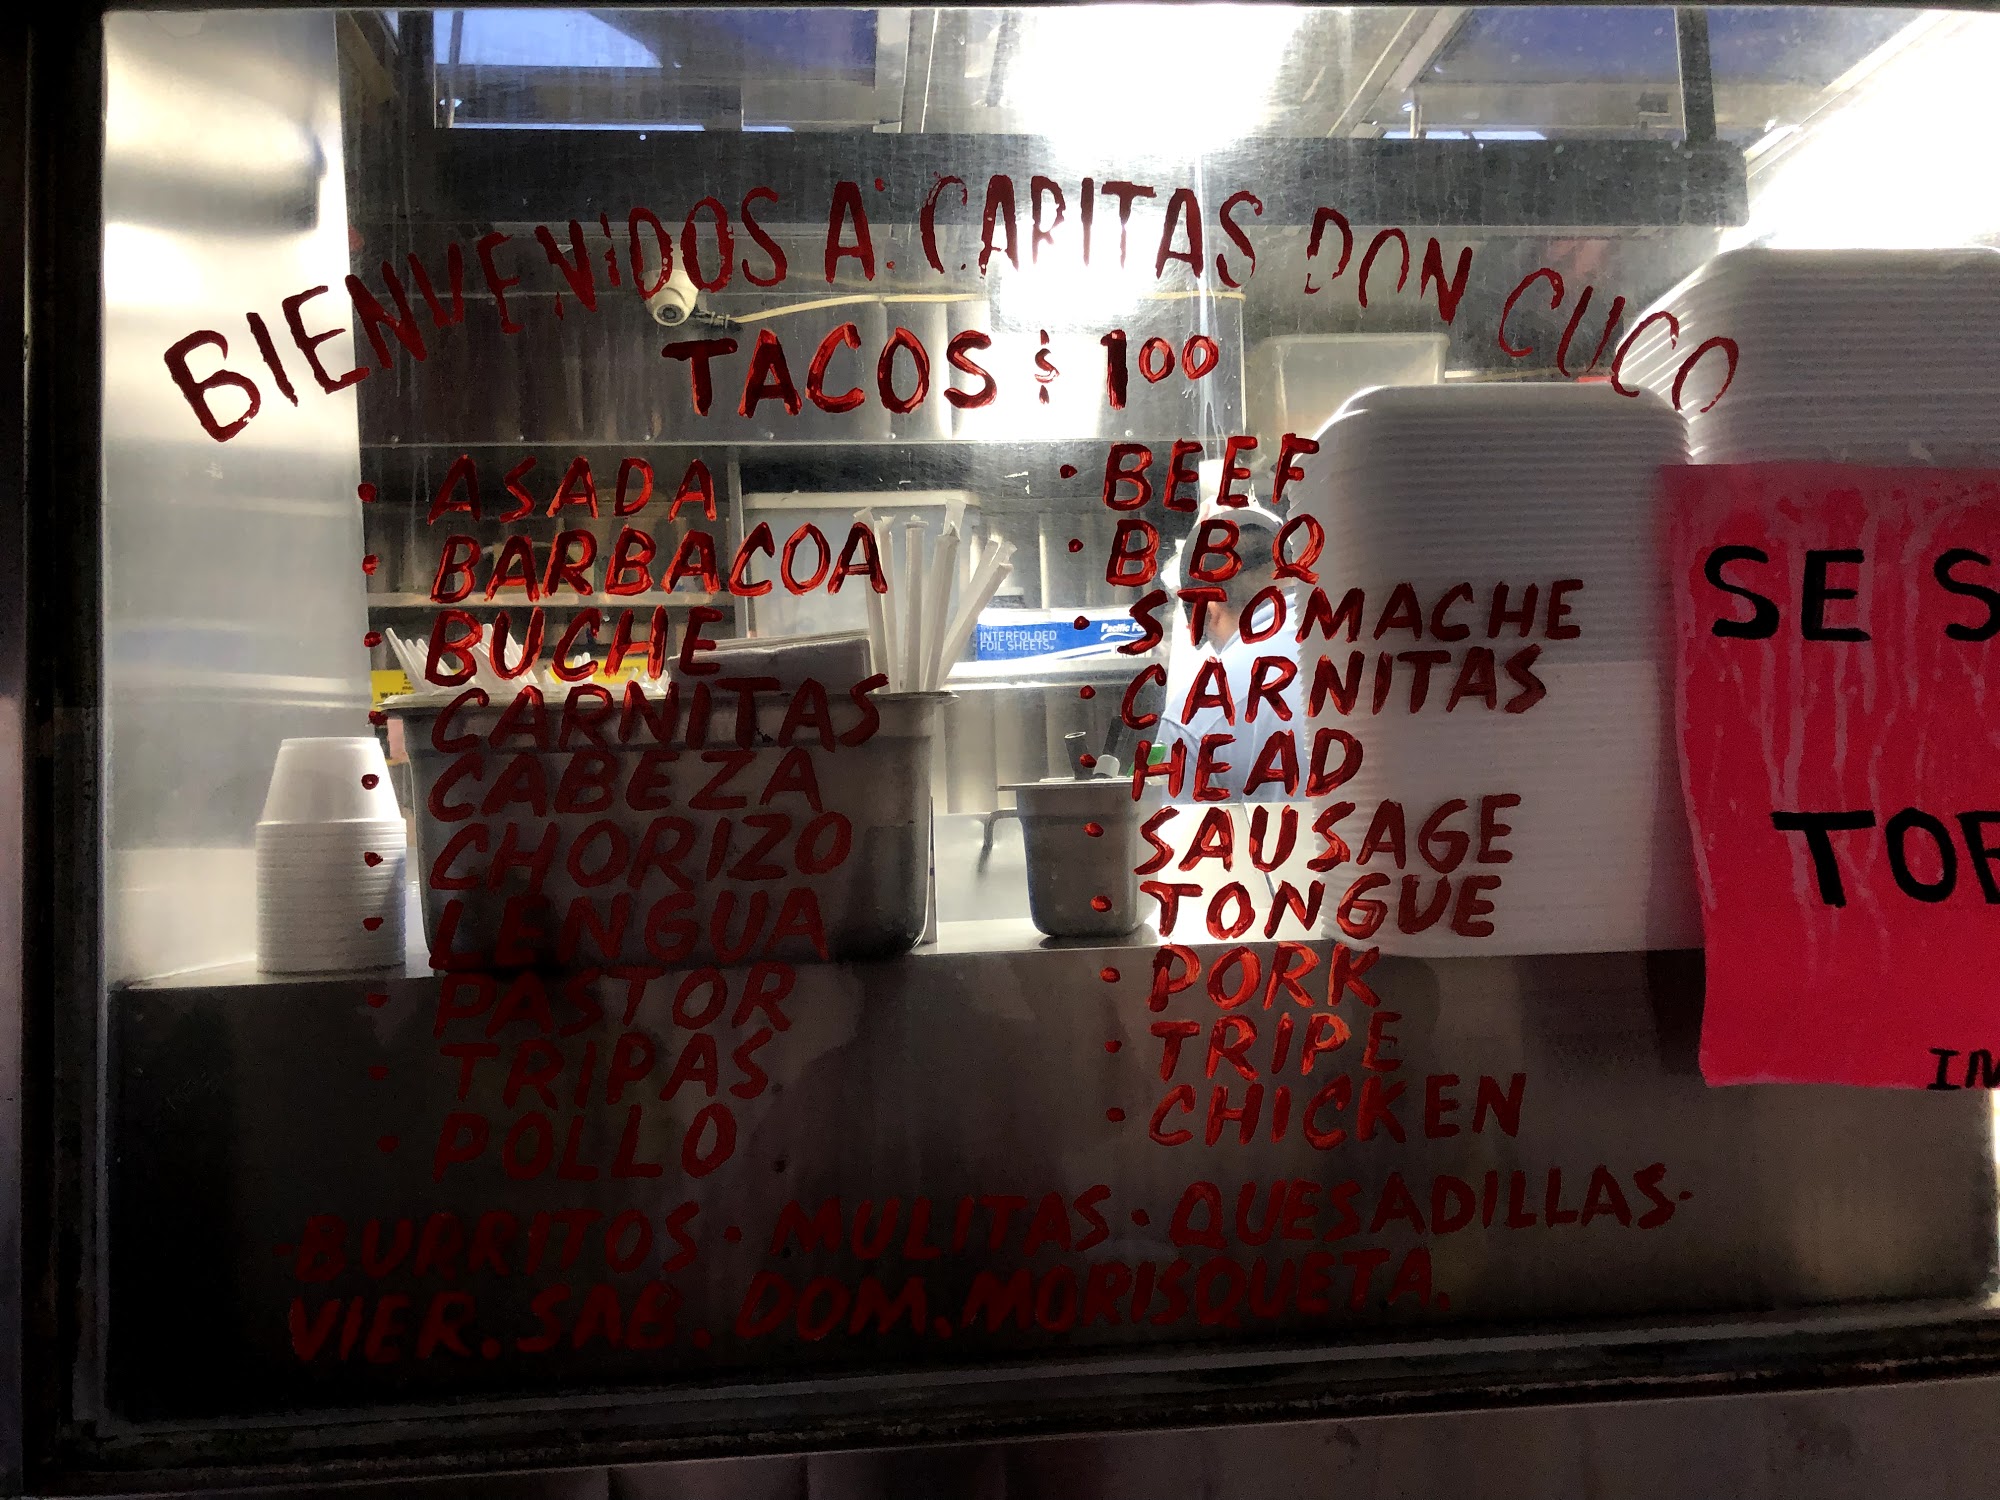 BIENVENIDOS A: CARITAS DON CUCO
TACOS $ 1.00
• ASADA
• BARBACOA
• BUCHE
• CARNITAS
• CABEZA
• CHORIZO
• LENGUA
• PASTOR
• TRIPAS
• POLLO
• BEEF
• BBQ
• STOMACHE
• CARNITAS
• HEAD
• SAUSAGE
• TONGUE
• PORK
• TRIPE
• CHICKEN
• BURRITOS • MULITAS • QUESADILLAS •
VIER. SAB. DOM. MORISQUETA.
INTERFOLDED
FOIL SHEETS
Pacific
SE